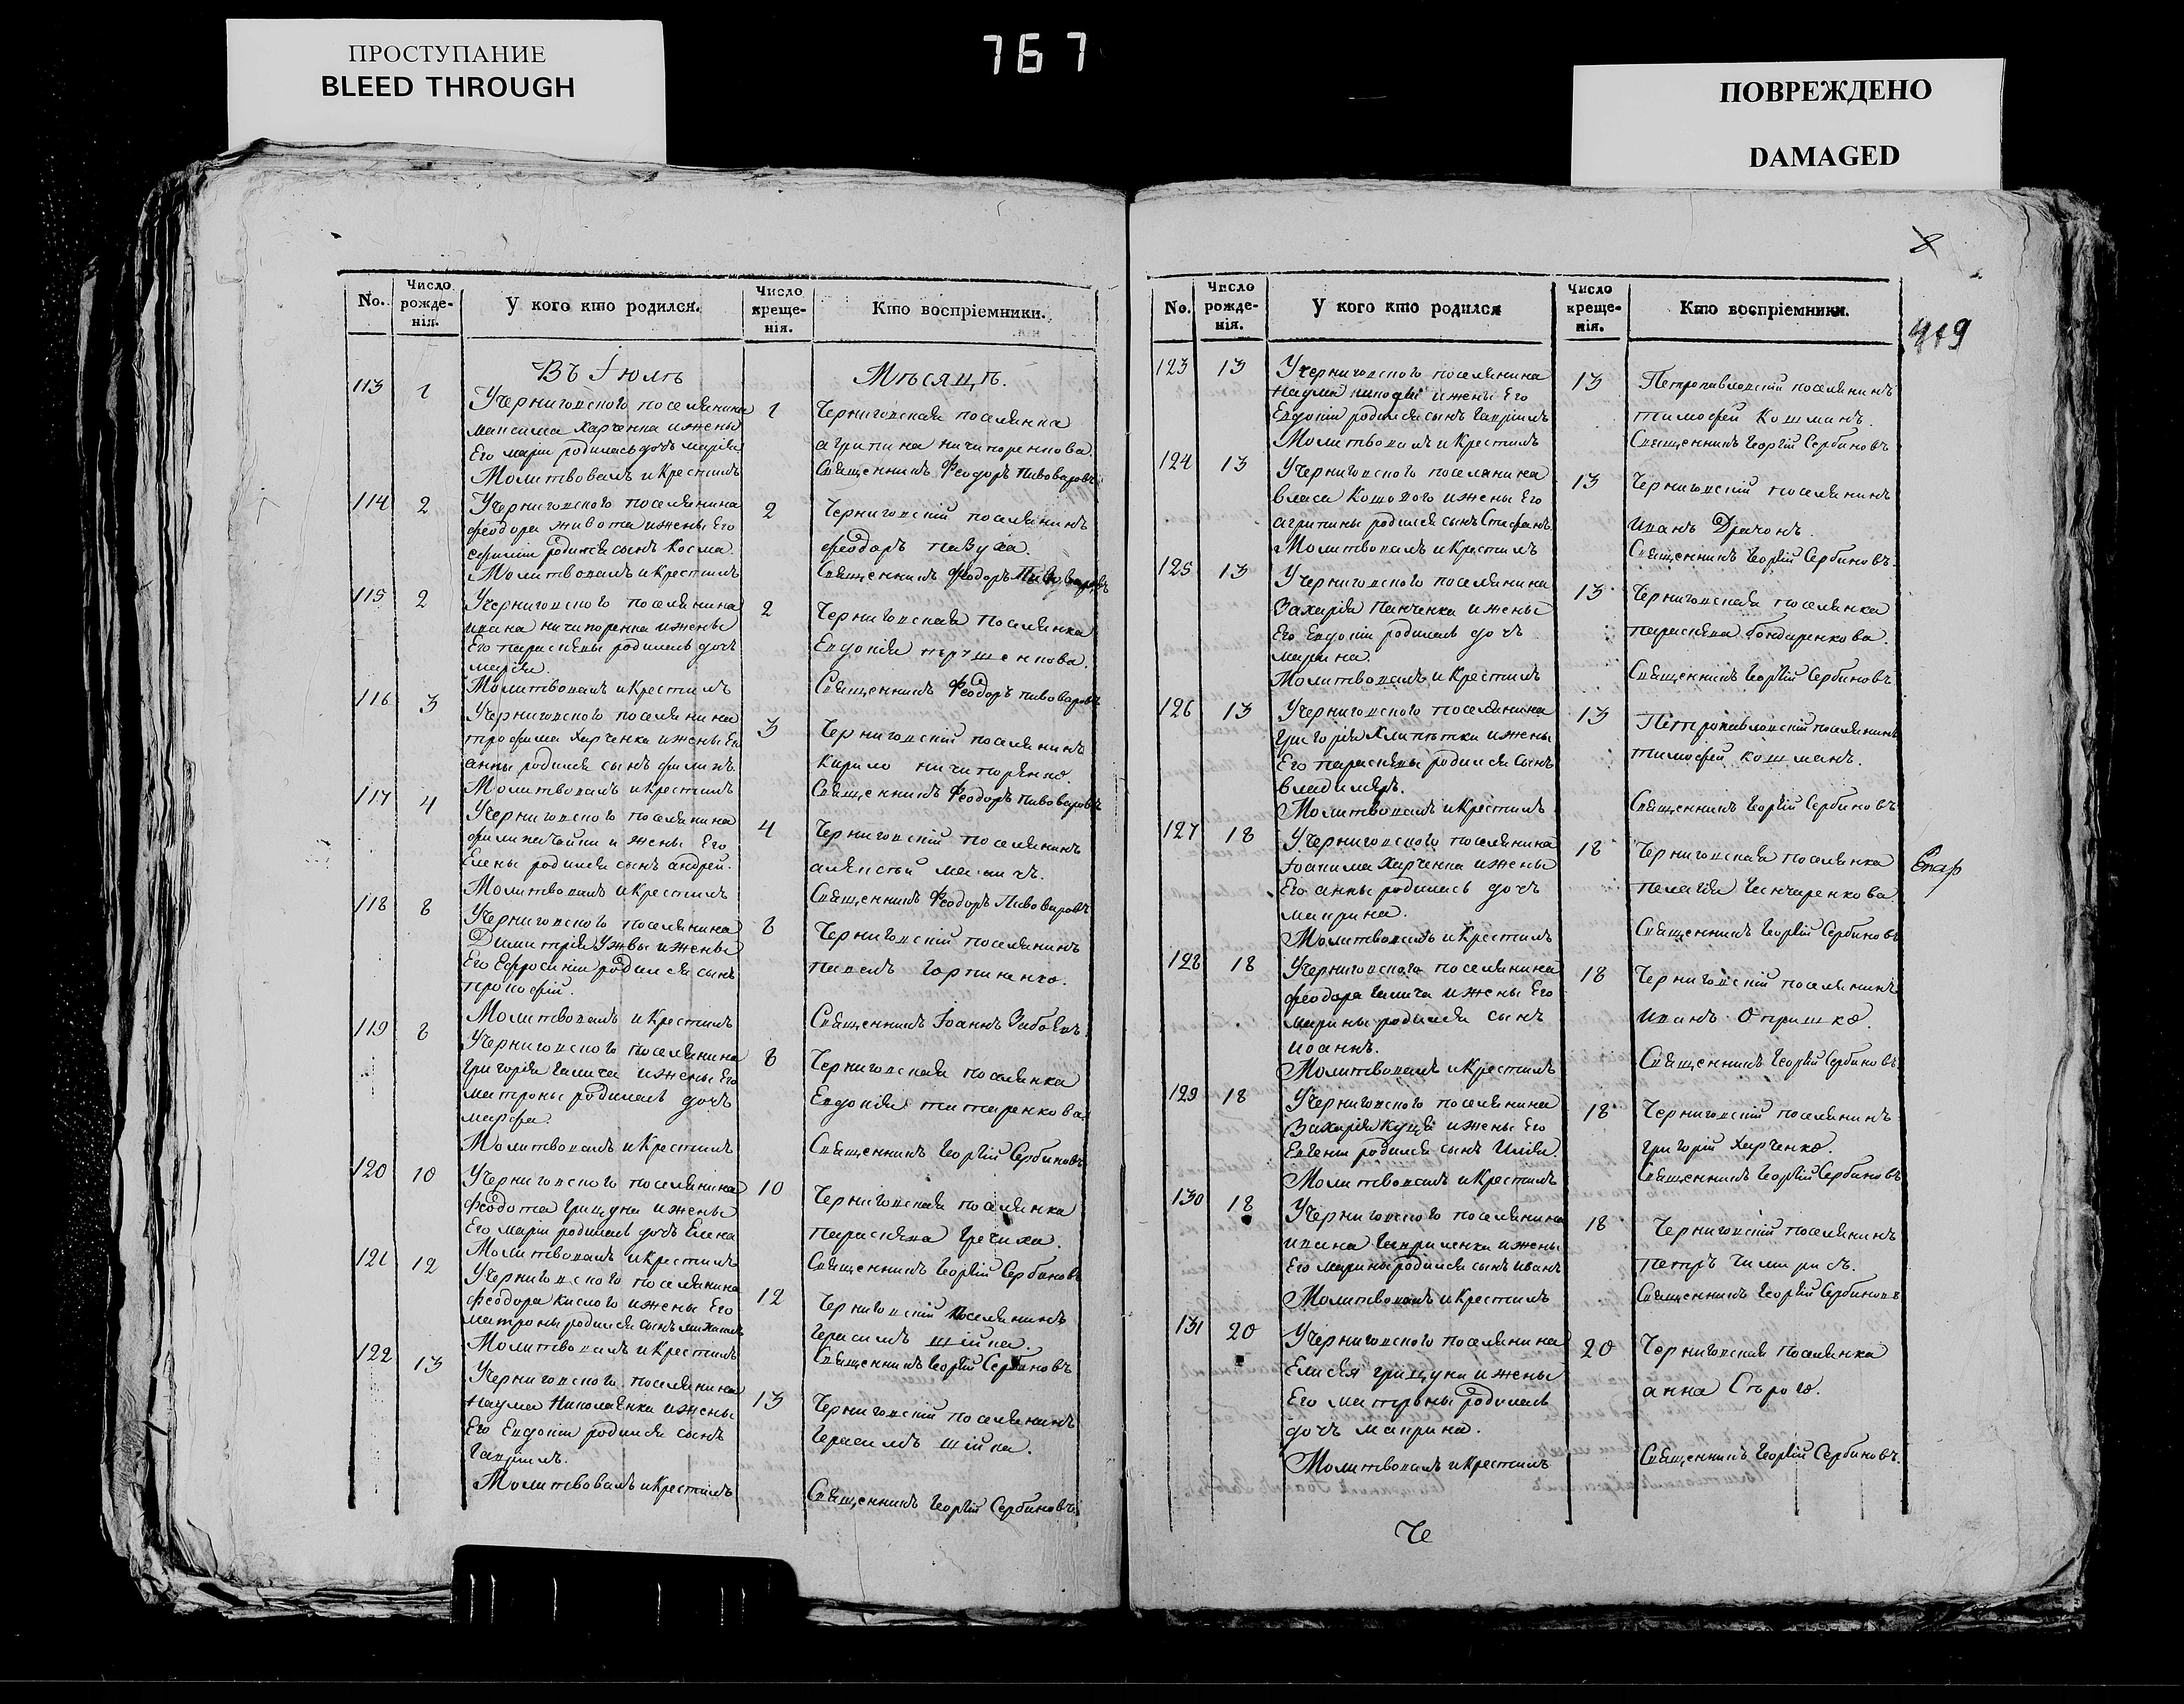 ПРОСТУПАНИЕ
BLEED THROUGH
767
ПОВРЕЖДЕНО
DAMAGED
No.
Число рожде-нія.
У кого кто родился.
Число креще-нія.
Кто воспріемники.
Въ Іюлѣ Мѣсяцѣ.
113 1 1
У черниговского поселянина
максима харченка и жены
Его маріи родилась дочь марія
Молитвовалъ и Крестилъ
Черниговская поселянка
агрипина ничипоренкова.
Священникъ Феодоръ Пивоваровъ
114 2 2
У черниговского поселянина
феодора живота и жены Его
родился сынъ Косма.
Молитвовалъ и Крестилъ
Черниговскій поселянинъ
феодоръ
Священникъ Феодоръ Пивоваровъ
115 2 2
У черниговского поселянина
ивана ничипоренка и жены
Его параскевы родилась дочь
марія.
Молитвовалъ и Крестилъ
Черниговская поселянка
Евдокія
Священникъ Феодоръ Пивоваровъ
116 3 3
У черниговского поселянина
трофима харченка и жены Его
анны родился сынъ филипъ.
Молитвовалъ и Крестилъ
Черниговскій поселянинъ
Кирило ничипоренко.
Священникъ Феодоръ Пивоваровъ
117 4 4
У черниговского поселянина
и жены Его
Елены родился сынъ андрей.
Молитвовалъ и Крестилъ
Черниговскій поселянинъ
Священникъ Феодоръ Пивоваровъ
118 8 8
У черниговского поселянина
Димитрія Ужвы и жены
Его Ефросиніи родился сынъ
прокофій.
Молитвовалъ и Крестилъ
Черниговскій поселянинъ
павелъ
Священникъ Іоаннъ
119 8 8
У черниговского поселянина
григорія и жены Его
матроны родилась дочь
марфа.
Молитвовалъ и Крестилъ
Черниговская поселянка
Евдокія татаренкова
Священникъ Георгій Сербиновъ
120 10 10
У черниговского поселянина
Федота Грицуна и жены
Его маріи родилась дочь Елена
Молитвовалъ и Крестилъ
Черниговская поселянка
параскева Гречиха.
Священникъ Георгій Сербиновъ
121 12 12
У черниговского поселянина
феодора Кислого и жены Его
матроны родился сынъ михаилъ
Молитвовалъ и Крестилъ
Черниговскій поселянинъ
Герасимъ шійка.
Священникъ Георгій Сербиновъ
122 13 13
У черниговского поселянина
наума Николаенка и жены
Его Евдокіи родился сынъ
Гавріилъ.
Молитвовалъ и Крестилъ
Черниговскій поселянинъ
Герасимъ шійка.
Священникъ Георгій Сербиновъ
No.
Число рожде-нія.
У кого кто родился
Число креще-нія.
Кто воспріемники.
123 13 13
У черниговского поселянина
наума и жены Его
Евдокіи родился сынъ Гавріилъ
Молитвовалъ и Крестилъ
Петропавловскій поселянинъ
тимофей Кошманъ.
Священникъ Георгій Сербиновъ
124 13 13
У черниговского поселянина
власа Кошового и жены Его
агрипины родился сынъ Стефанъ
Молитвовалъ и Крестилъ
Черниговскій поселянинъ
иванъ Драчонъ.
Священникъ Георгій Сербиновъ.
125 13 13
У черниговского поселянина
Захарія Панченка и жены
Его Евдокіи родилась дочь
марина.
Молитвовалъ и Крестилъ
Черниговская поселянка
параскева бондаренкова.
Священникъ Георгій Сербиновъ
126 13 13
У черниговского поселянина
григорія и жены
Его параскевы родился сынъ
владимеръ.
Молитвовалъ и Крестилъ
Петропавловскій поселянинъ
тимофей кошманъ.
Священникъ Георгій Сербиновъ
127 18 18
У черниговского поселянина
Іоакима Харченка и жены
Его анны родилась дочь
макрина.
Молитвовалъ и Крестилъ
Черниговская поселянка
пелагія
Священникъ Георгій Сербиновъ
128 18 18
У черниговского поселянина
феодора и жены Его
марины родился сынъ
иоаннъ.
Молитвовалъ и Крестилъ
Черниговскій поселянинъ
иванъ Опришко.
Священникъ Георгій Сербиновъ
129 18 18
У черниговского поселянина
Захарія Куця и жены Его
Евгеніи родился сынъ Илія.
Молитвовалъ и Крестилъ
Черниговскій поселянинъ
григорій Харченко.
Священникъ Георгій Сербиновъ
130 18 18
У черниговского поселянина
ивана Гавриленка и жены
Его марины родился сынъ иванъ
Молитвовалъ и Крестилъ
Черниговскій поселянинъ
петръ
Священникъ Георгій Сербиновъ
131 20 20
У черниговского поселянина
Елисея грицуна и жены
Его матроны родилась
дочь макрина.
Молитвовалъ и Крестилъ
Черниговская поселянка
анна
Священникъ Георгій Сербиновъ.
Че